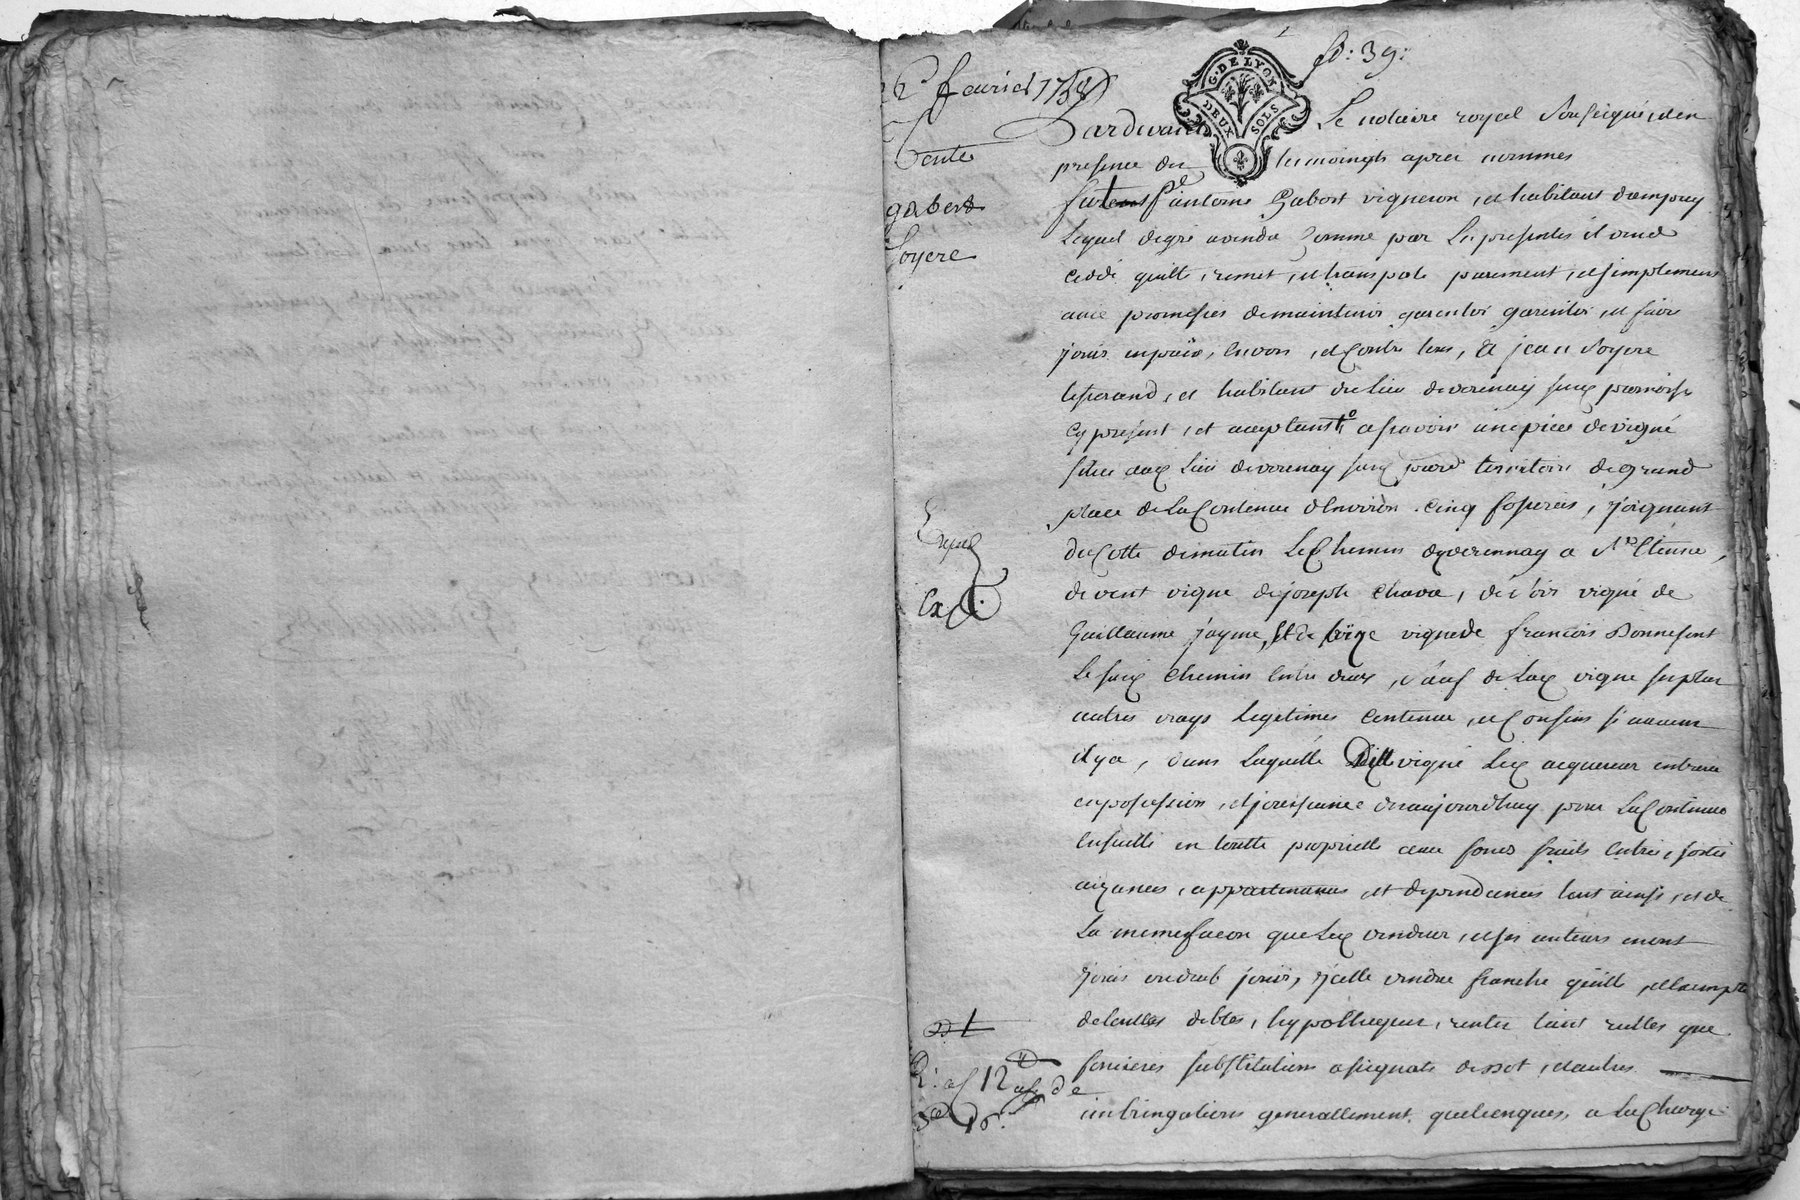 fo: 39:
2e fevrier 1758
Vente
gabert
Soyere
G. DE LYON
DEUX SOLS
Pardevant Le notaire royal Soussigné, et en
presence des temoingts aprés nommés
fut Sr antoine Gabort vigneron, et habitant dampuy
Lequel degré avendu Comme par Les presentes il vend
cede quitte, remet, et transporte purement, et simplement
avec promesses demaintenir garentir, et faire
jouir enpaix, envers, et Contre tous, a jean Soyere
tisserand, et habitant du Lieu deverenay susd paroisse
cy present, et acceptant, asçavoir une piece devigne
sitée aud Lieu deverenay susd parr territoire degrand
place de La Contenue denviron cinq fosserées, joignant
du Cotté dematin Le Chemin deverennay a
de vent vigne dejoseph Chava, de soir vigne de
Guillaume jayme, et de bize vigne de francois Bonnefont
Le susd Chemin Entre deux, Sauf de Lad vigne ses plus
autres vrays Legitimes Contenue, et Confins si aucuns
il ya, dans Laquelle Ditte vigne Led acquereur entrera
enpossession, et jouissance dezaujourdhuy pour La Continuer
Ensuitte en toutte proprietté avec fonds fruits Entrées, sorties
aizances, appartenances et dependances tout ainsi, et de
La meme façon que Led vendeur, et ses auteurs enont
joui ou deub jouir, jcelle vendue franche quitte, et Exempte
detouttes debtes, hypotheques, rentes tant reelles que
foncieres substitutions assignats dedot, et autres
imbringations generallement quelconques, a La Charge
Expedie
Exp.
R: af 12